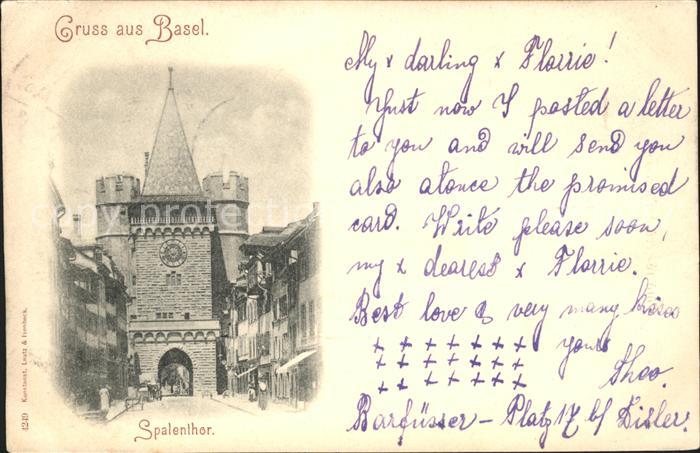 Gruss aus Basel.
My x darling x Florrie!
Just now I posted a letter
to you and will send you
also atonce the promised
card. Write please soon,
my x dearest x Florrie.
Best love & very many kisses
+ + + + + + + yours
+ + + + + + +
+ + + + + + + Theo.
Barfüsser-Platz 17 b/ Disler.
Spalenthor.
4249 Kunstanst. Lautz & Isenbeck.
copy protected